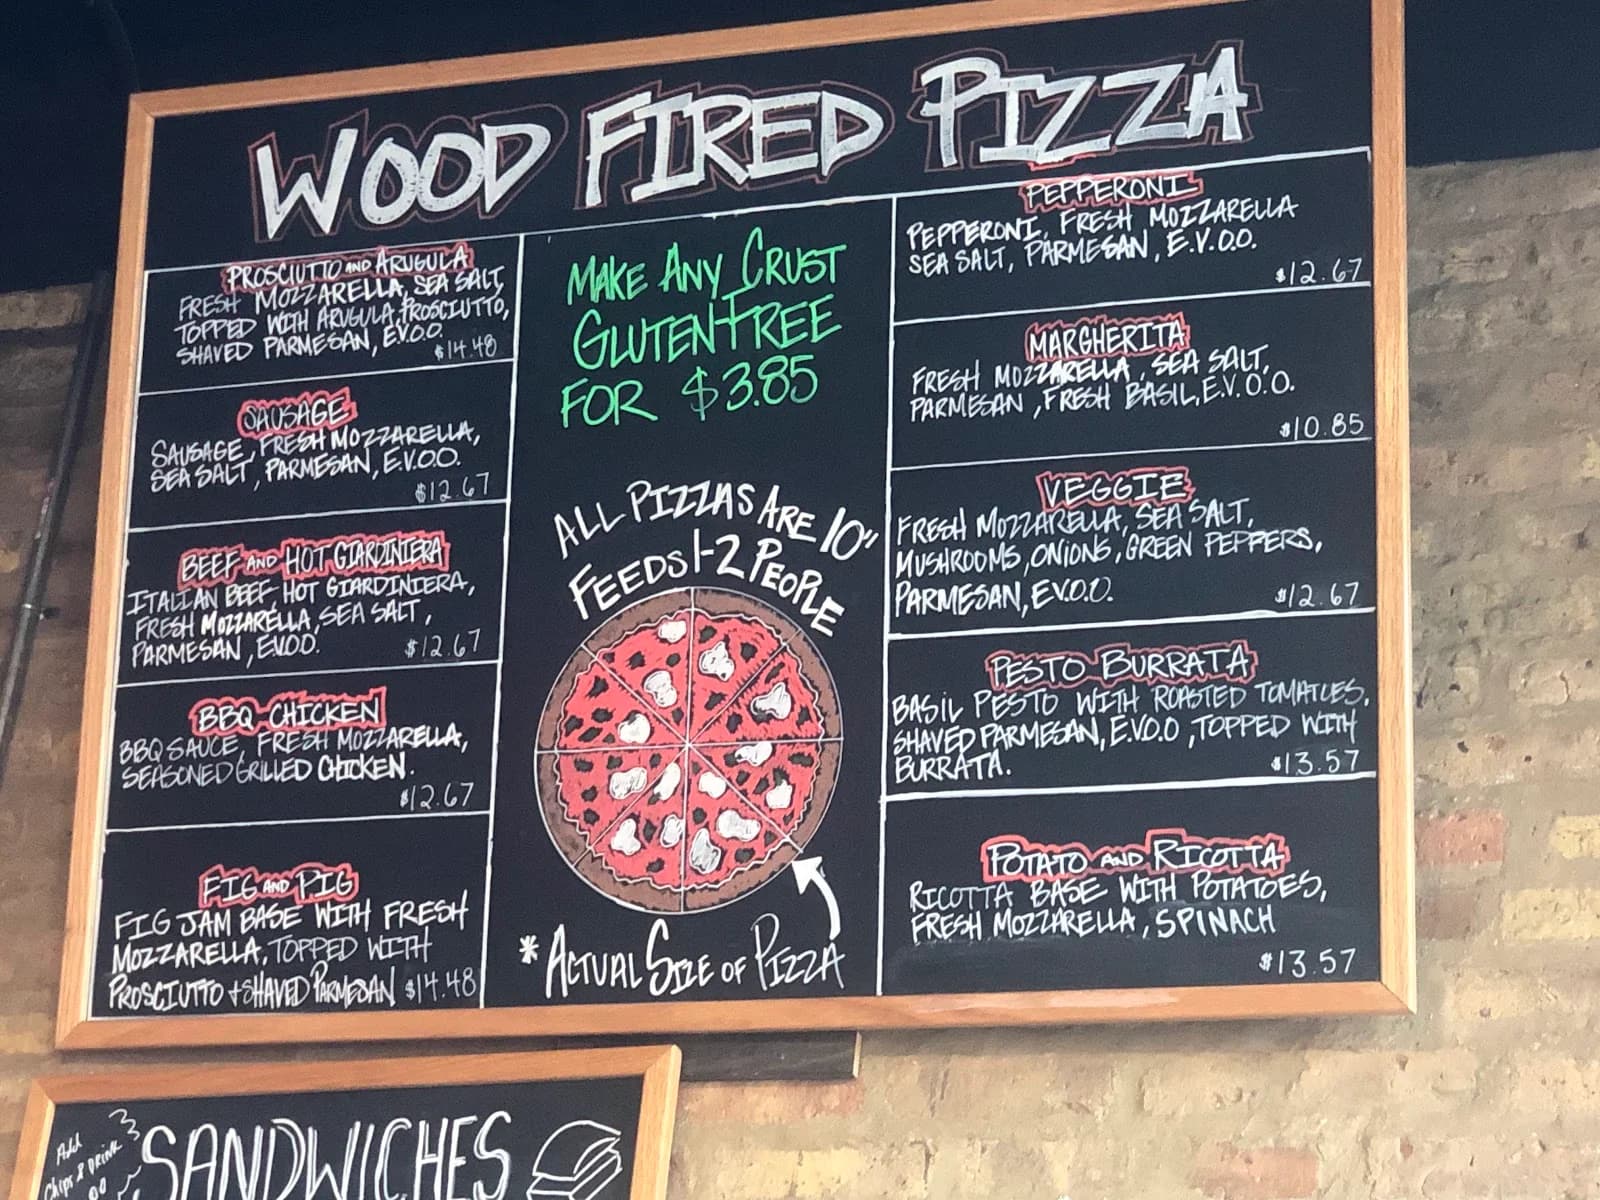 WOOD FIRED PIZZA
PROSCIUTTO AND ARUGULA
FRESH MOZZARELLA, SEA SALT,
TOPPED WITH ARUGULA, PROSCIUTTO,
SHAVED PARMESAN, E.V.O.O.
$14.48
SAUSAGE
SAUSAGE, FRESH MOZZARELLA,
SEA SALT, PARMESAN, E.V.O.O.
$12.67
BEEF AND HOT GIARDINIERA
ITALIAN BEEF HOT GIARDINIERA,
FRESH MOZZARELLA, SEA SALT,
PARMESAN, E.V.O.O.
$12.67
BBQ CHICKEN
BBQ SAUCE, FRESH MOZZARELLA,
SEASONED GRILLED CHICKEN.
$12.67
FIG AND PIG
FIG JAM BASE WITH FRESH
MOZZARELLA, TOPPED WITH
PROSCIUTTO + SHAVED PARMESAN $14.48
MAKE ANY CRUST
GLUTEN FREE
FOR $3.85
ALL PIZZAS ARE 10"
FEEDS 1-2 PEOPLE
* ACTUAL SIZE OF PIZZA
PEPPERONI
PEPPERONI, FRESH MOZZARELLA
SEA SALT, PARMESAN, E.V.O.O.
$12.67
MARGHERITA
FRESH MOZZARELLA, SEA SALT,
PARMESAN, FRESH BASIL, E.V.O.O.
$10.85
VEGGIE
FRESH MOZZARELLA, SEA SALT,
MUSHROOMS, ONIONS, GREEN PEPPERS,
PARMESAN, E.V.O.O.
$12.67
PESTO BURRATA
BASIL PESTO WITH ROASTED TOMATOES,
SHAVED PARMESAN, E.V.O.O, TOPPED WITH
BURRATA.
$13.57
POTATO AND RICOTTA
RICOTTA BASE WITH POTATOES,
FRESH MOZZARELLA, SPINACH
$13.57
Add
Chips & Drink
SANDWICHES